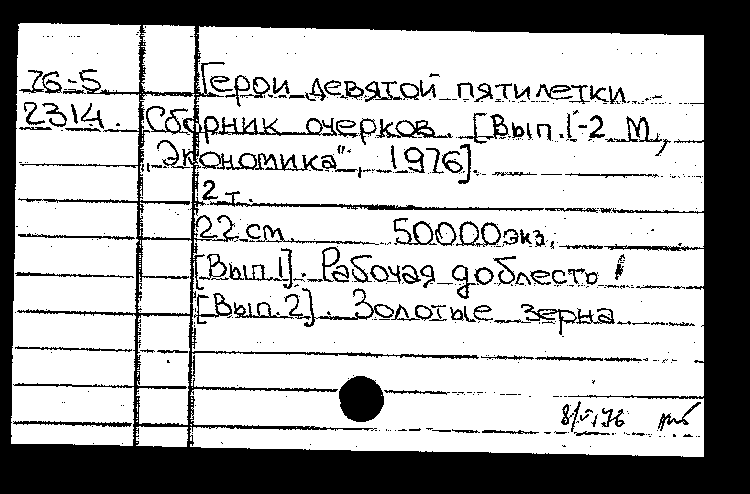 76-5 Герои девятой пятилетки -
2314. Сборник очерков. [Вып.1-2 М,
„Экономика", 1976].
2 т.
22 см. 50000экз.
[Вып.1]. Рабочая доблесть
[Вып.2]. Золотые зерна